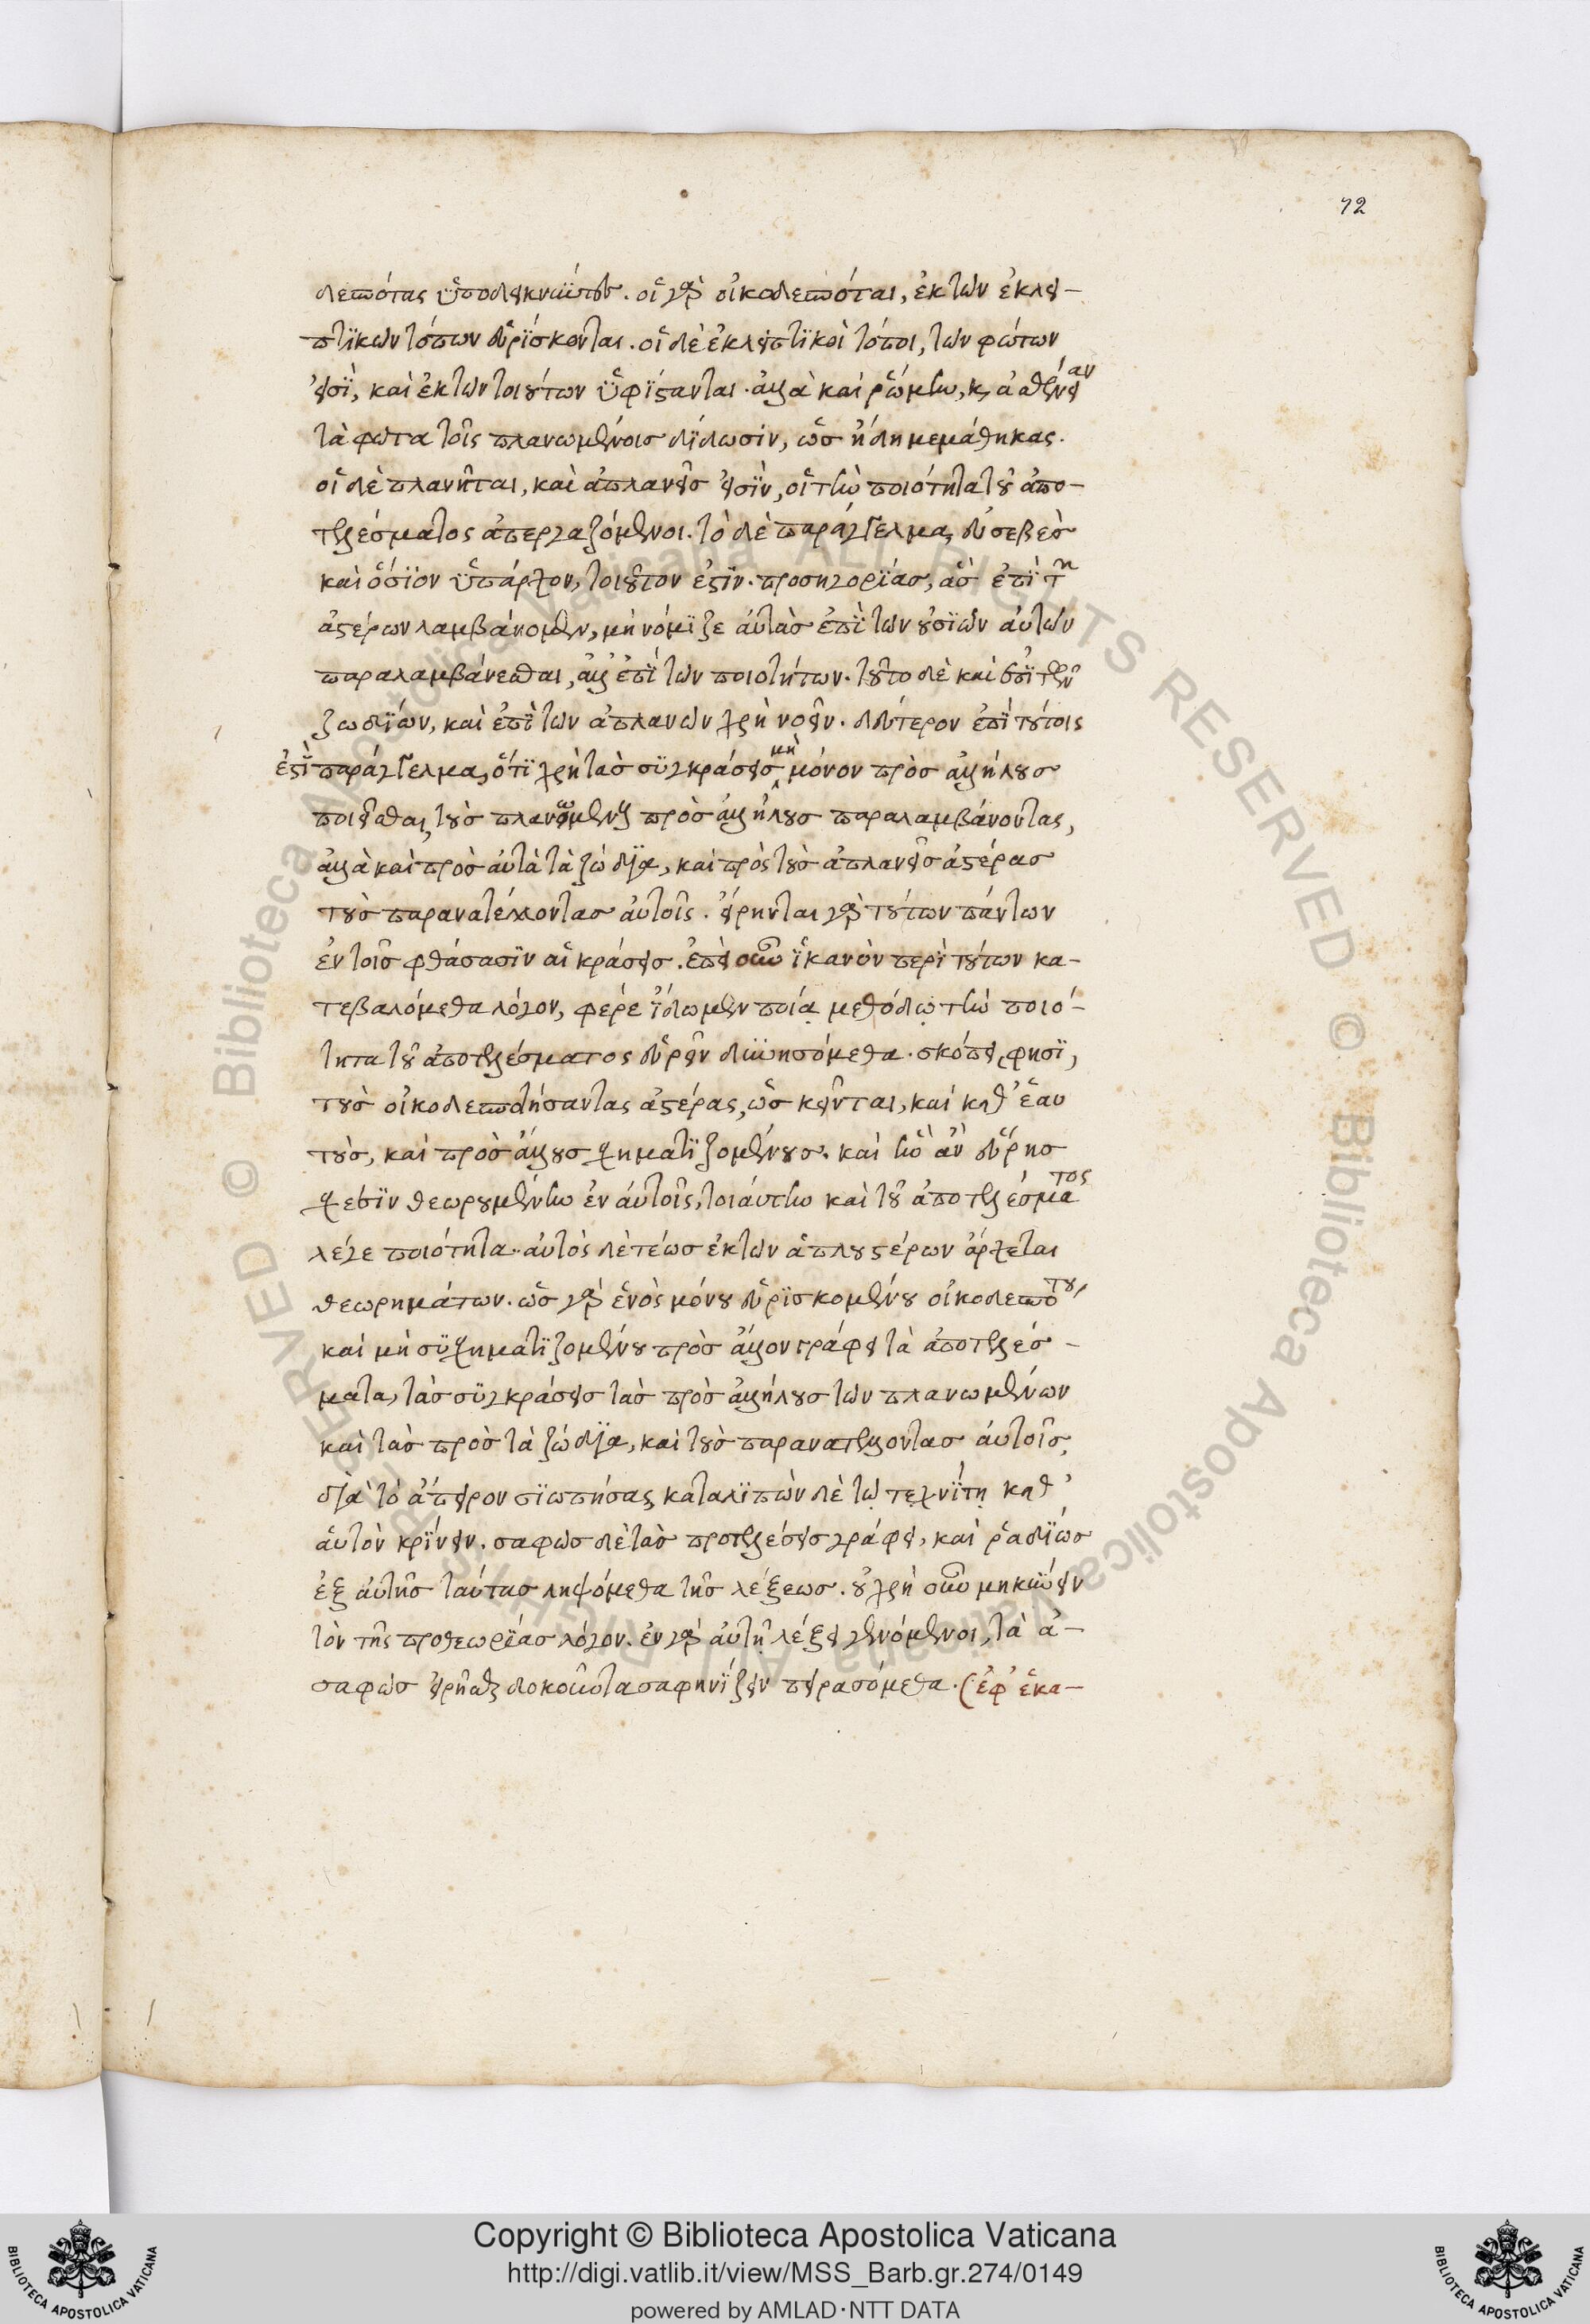 72
δεσπότας ὑποδεικνύντων. οἱ γὰρ οἰκοδεσπόται, ἐκ τῶν ἐκλει-
πτικῶν τόπων εὑρίσκονται. οἱ δὲ ἐκλειπτικοὶ τόποι, τῶν φώτων
εἰσὶ, καὶ ἐκ τῶν τοιούτων ὑφίστανται. ἀλλὰ καὶ ῥώμην, κ ἀσθένειαν
τὰ φῶτα τοῖς πλανωμένοις δίδωσιν, ὡς ἤδη μεμάθηκας.
οἱ δὲ πλανῆται, καὶ ἀπλανεῖς εἰσὶν, οἱ τὴν ποιότητα τοῦ ἀπο-
τελέσματος ἀπεργαζόμενοι. τὸ δὲ παράγγελμα, εὐσεβὲς
καὶ ὅσιον ὑπάρχον, τοιοῦτον ἐστίν. προσηγορίας, ἃς ἐπὶ τῶν
ἀστέρων λαμβάνομεν, μὴ νόμιζε αὐτὰς ἐπὶ τῶν οὐσιῶν αὐτῶν
παραλαμβάνεσθαι, ἀλλ' ἐπὶ τῶν ποιοτήτων. τοῦτο δὲ καὶ ἐπὶ τῶν
ζωδίων, καὶ ἐπὶ τῶν ἀπλανῶν χρὴ νοεῖν. δεύτερον ἐπὶ τούτοις
ἐστὶ παράγγελμα, ὅτι χρὴ τὰς συγκράσεις μὴ μόνον πρὸς ἀλλήλους
ποιεῖσθαι, τοὺς πλανωμένους πρὸς ἀλλήλους παραλαμβάνοντας,
ἀλλὰ καὶ πρὸς αὐτὰ τὰ ζώδια, καὶ πρὸς τοὺς ἀπλανεῖς ἀστέρας
τοὺς παρανατέλλοντας αὐτοῖς. εἴρηνται γὰρ τούτων πάντων
ἐν τοῖς φθάσασιν αἱ κράσεις. ἐπεὶ οὖν ἱκανὸν περὶ τούτων κα-
τεβαλόμεθα λόγον, φέρε ἴδωμεν ποίᾳ μεθόδῳ τὴν ποιό-
τητα τοῦ ἀποτελέσματος εὑρεῖν δυνησόμεθα. σκόπει, φησὶ,
τοὺς οἰκοδεσποτήσαντας ἀστέρας, ὡς κεῖνται, καὶ καθ' ἑαυ
τοὺς, καὶ πρὸς ἄλλους σχηματιζομένους. καὶ ἣν ἂν εὕρῃς
σχέσιν θεωρουμένην ἐν αὐτοῖς, τοιαύτην καὶ τοῦ ἀποτελέσματος
λέγε ποιότητα. αὐτὸς δὲ τέως ἐκ τῶν ἁπλουστέρων ἄρχεται
θεωρημάτων. ὡς γὰρ ἑνὸς μόνου εὑρισκομένου οἰκοδεσπότου,
καὶ μὴ συσχηματιζομένου πρὸς ἄλλον γράφει τὰ ἀποτελέσ-
ματα, τὰς συγκράσεις τὰς πρὸς ἀλλήλους τῶν πλανωμένων
καὶ τὰς πρὸς τὰ ζώδια, καὶ τοὺς παρανατέλλοντας αὐτοῖς,
διὰ τὸ ἄπειρον σιωπήσας, καταλιπὼν δὲ τῷ τεχνίτῃ καθ'
αὑτὸν κρίνειν. σαφῶς δὲ τὰς προτελέσεις γράφει, καὶ ῥαδίως
ἐξ αὐτῆς ταύτας ληψόμεθα τῆς λέξεως. οὐ χρὴ οὖν μηκύνειν
τὸν τῆς προθεωρίας λόγον. ἐν γὰρ αὐτῇ λέξει γενόμενοι, τὰ ἀ-
σαφῶς εἰρῆσθαι δοκοῦντα σαφηνίζειν πειρασόμεθα. (ἐφ' ἑκα-
Copyright © Biblioteca Apostolica Vaticana
http://digi.vatlib.it/view/MSS_Barb.gr.274/0149
powered by AMLAD·NTT DATA